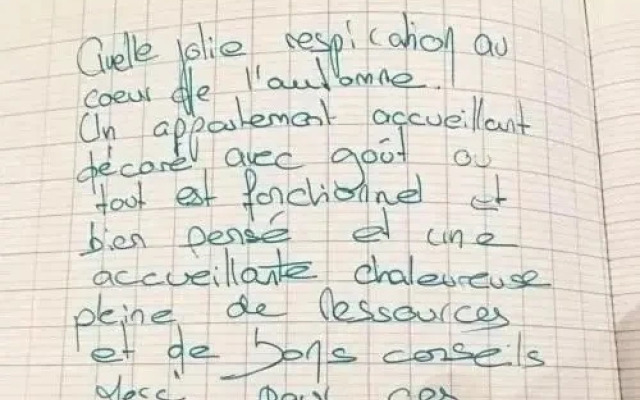 Quelle jolie respiration au
coeur de l'automne.
Un appartement accueillant
décoré avec goût ou
tout est fonctionnel et
bien pensé et une
accueillante chaleureuse
pleine de ressources
et de bons conseils
pour ces